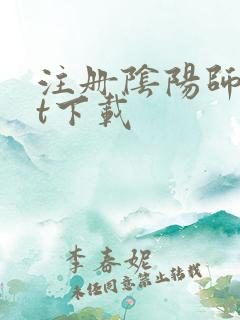 注册陰陽師
t下載
李春妮
未经同意禁止转载